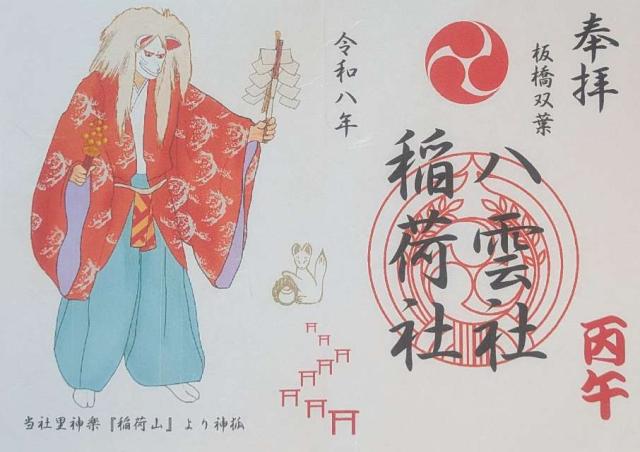 奉拝
板橋双葉
八雲社
稲荷社
丙午
令和八年
当社里神楽『稲荷山』より神狐